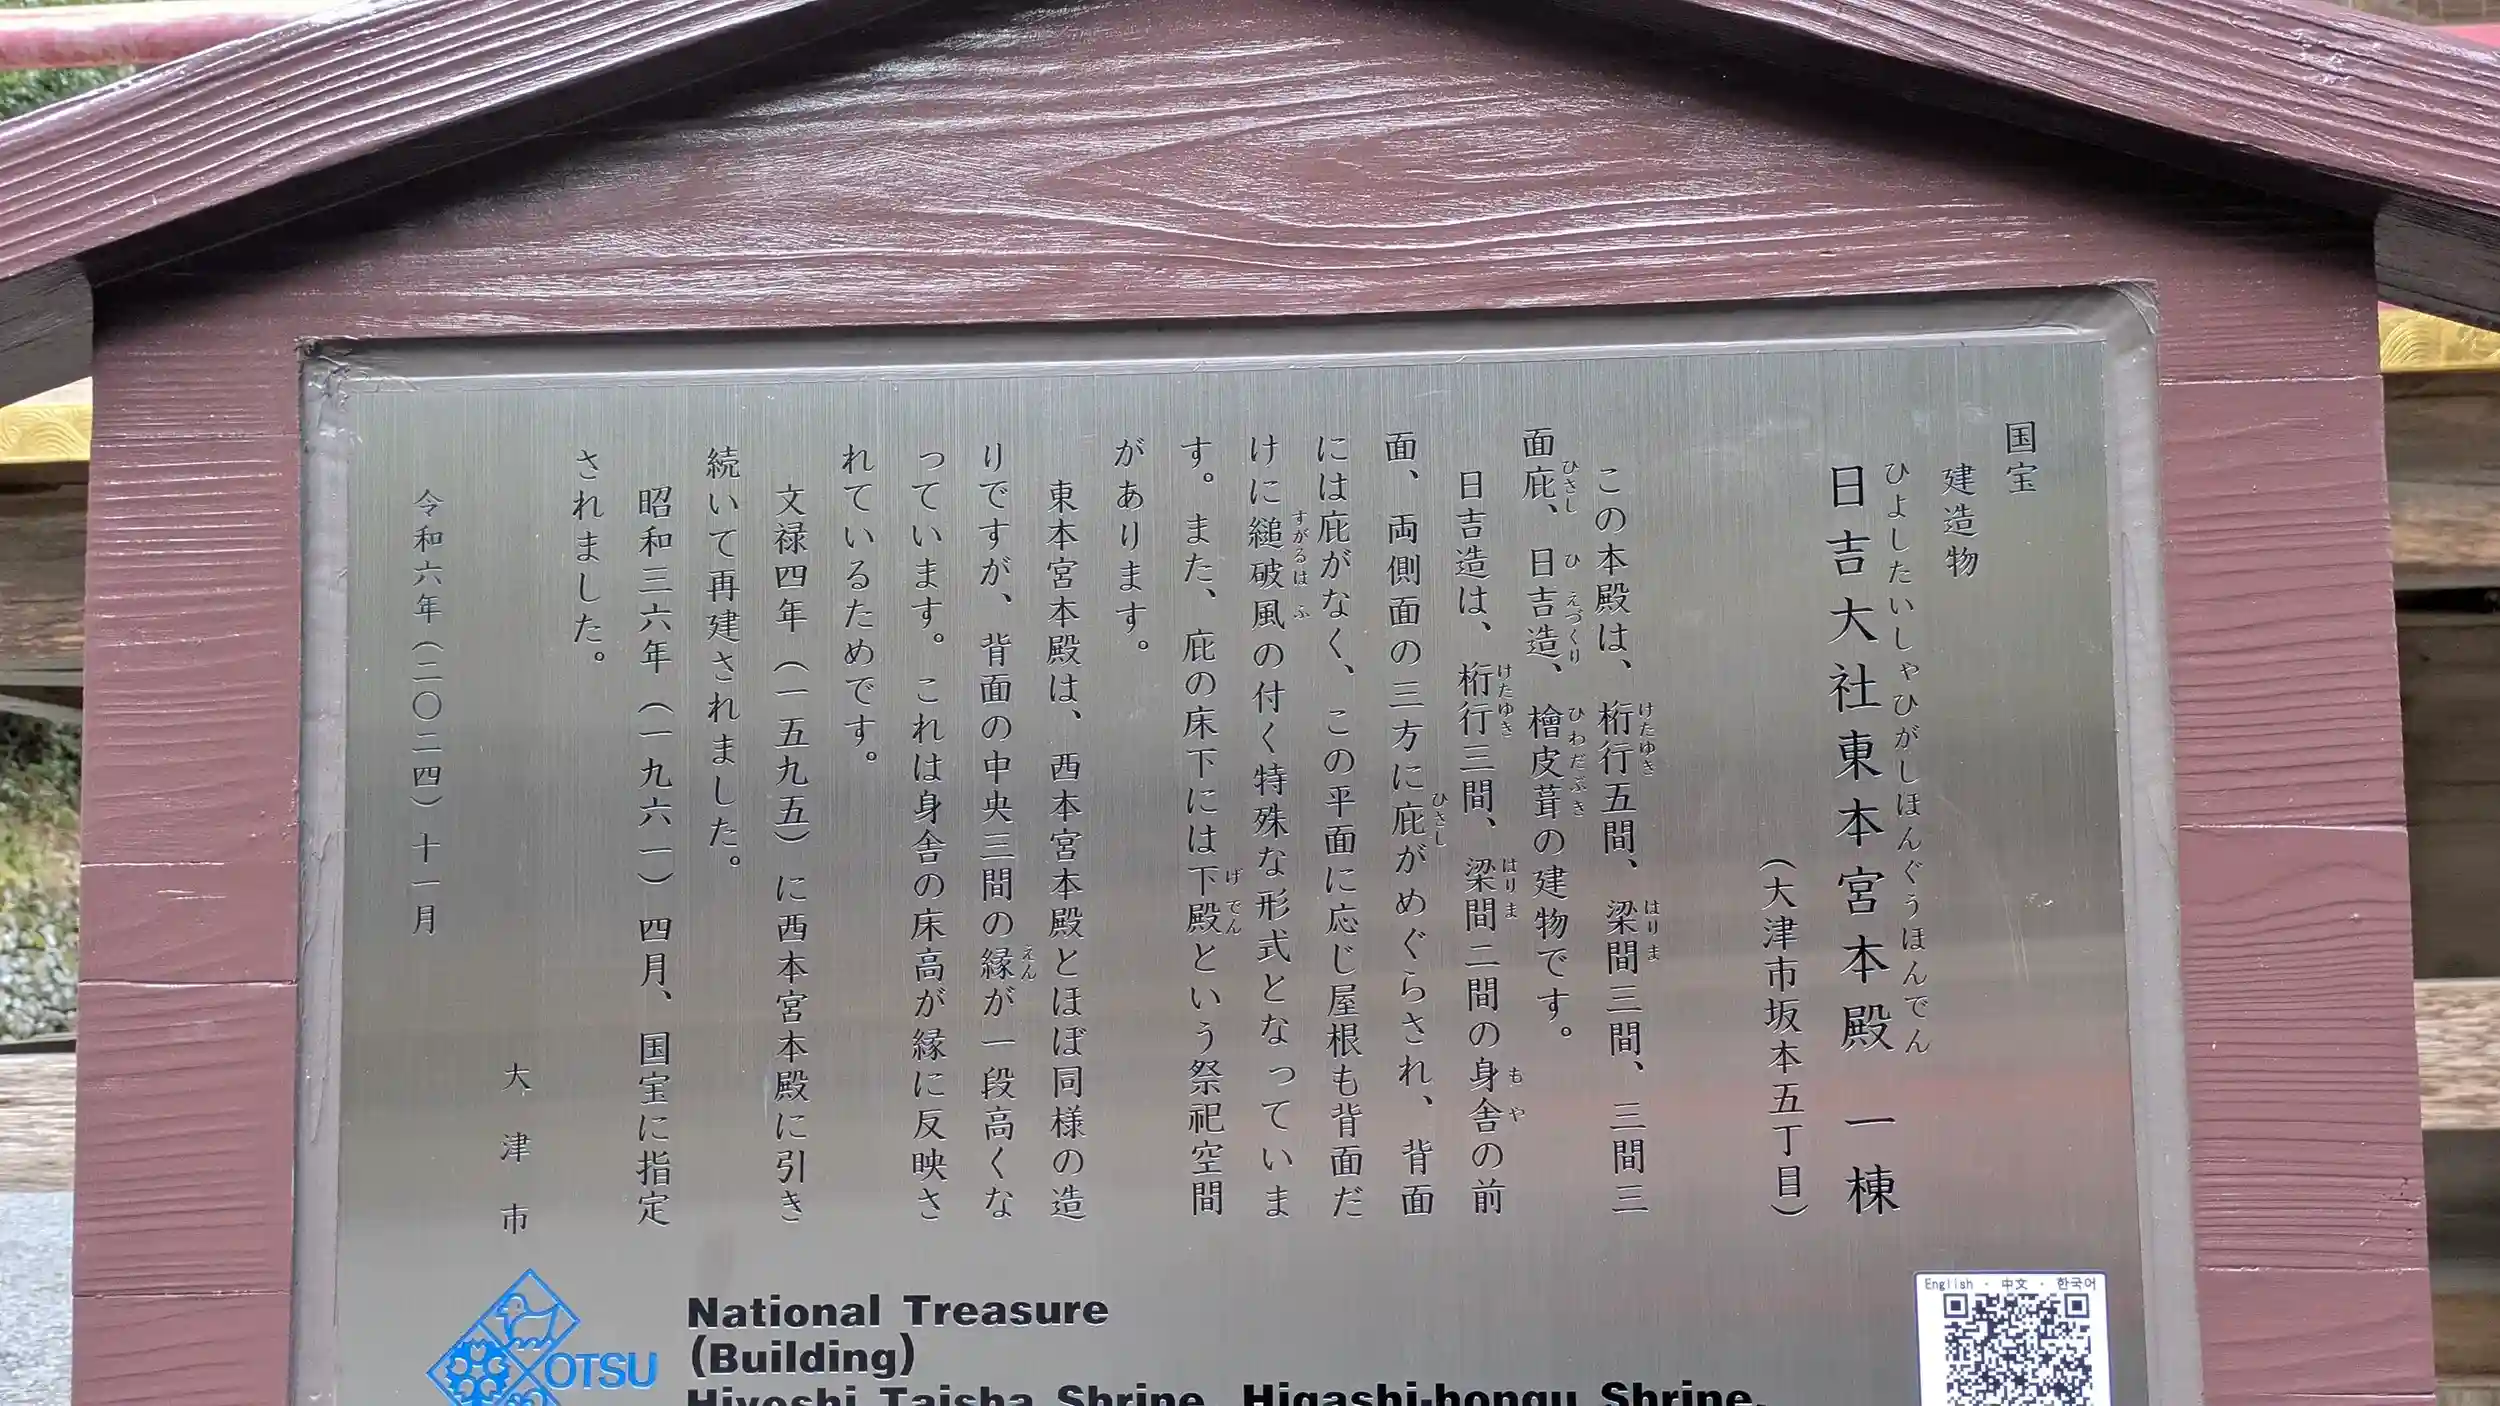 国宝
建造物
ひよしたいしゃひがしほんぐうほんでん
日吉大社東本宮本殿 一棟
（大津市坂本五丁目）
けたゆき はりま
この本殿は、桁行五間、梁間三間、三間三
ひさし ひえづくり ひわだぶき
面庇、日吉造、檜皮葺の建物です。
けたゆき はりま もや
日吉造は、桁行三間、梁間二間の身舎の前
ひさし
面、両側面の三方に庇がめぐらされ、背面
には庇がなく、この平面に応じ屋根も背面だ
すがるはふ
けに縋破風の付く特殊な形式となっていま
げでん
す。また、庇の床下には下殿という祭祀空間
があります。
東本宮本殿は、西本宮本殿とほぼ同様の造
えん
りですが、背面の中央三間の縁が一段高くな
っています。これは身舎の床高が縁に反映さ
れているためです。
文禄四年（一五九五）に西本宮本殿に引き
続いて再建されました。
昭和三六年（一九六一）四月、国宝に指定
されました。
大津市
令和六年（二〇二四）十一月
OTSU
National Treasure
(Building)
Hiyoshi Taisha Shrine, Higashi-hongu Shrine,
English・中文・한국어